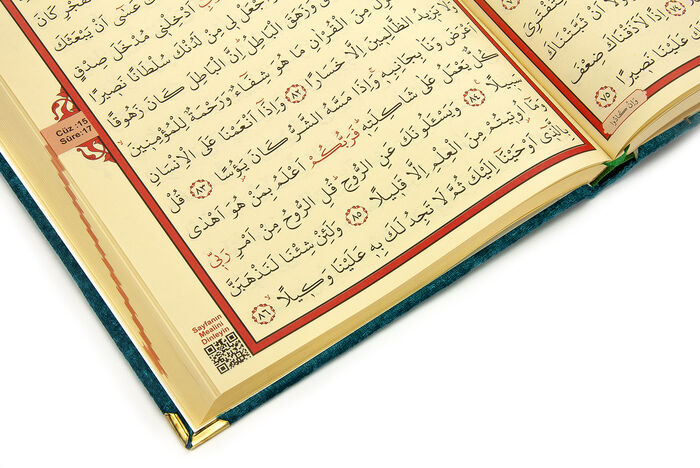 كَانَ
عَسٰٓى اَنْ يَبْعَثَكَ
اَدْخِلْن۪ي مُدْخَلَ صِدْقٍ
ل۪ي مِنْ لَدُنْكَ سُلْطَانًا نَص۪يرًا
وَزَهَقَ الْبَاطِلُۜ اِنَّ الْبَاطِلَ كَانَ زَهُوقًا
مِنَ الْقُرْاٰنِ مَا هُوَ شِفَٓاءٌ وَرَحْمَةٌ لِلْمُؤْمِن۪ينَۙ
يَز۪يدُ الظَّالِم۪ينَ اِلَّا خَسَارًا ﴿٨٢﴾ وَاِذَٓا اَنْعَمْنَا عَلَى الْاِنْسَانِ
اَعْرَضَ وَنَاٰ بِجَانِبِه۪ۚ وَاِذَا مَسَّهُ الشَّرُّ كَانَ يَؤُ۫سًا ﴿٨٣﴾ قُلْ
كُلٌّ يَعْمَلُ عَلٰى شَاكِلَتِه۪ۜ فَرَبُّكُمْ اَعْلَمُ بِمَنْ هُوَ اَهْدٰى
سَب۪يلًا ﴿٨٤﴾ وَيَسْـَٔلُونَكَ عَنِ الرُّوحِۜ قُلِ الرُّوحُ مِنْ اَمْرِ رَبّ۪ي
وَمَٓا اُو۫ت۪يتُمْ مِنَ الْعِلْمِ اِلَّا قَل۪يلًا ﴿٨٥﴾ وَلَئِنْ شِئْنَا لَنَذْهَبَنَّ
بِالَّذ۪ٓي اَوْحَيْنَٓا اِلَيْكَ ثُمَّ لَا تَجِدُ لَكَ بِه۪ عَلَيْنَا وَك۪يلًاۙ ﴿٨٦﴾
Cüz :15
Sûre:17
Sayfanın
Mealini
Dinleyin
اَنْ ثَبَّتْنَاكَ
اِذًا لَاَذَقْنَاكَ ضِعْفَ
عَلَيْنَا نَص۪يرًا ﴿٧٥﴾